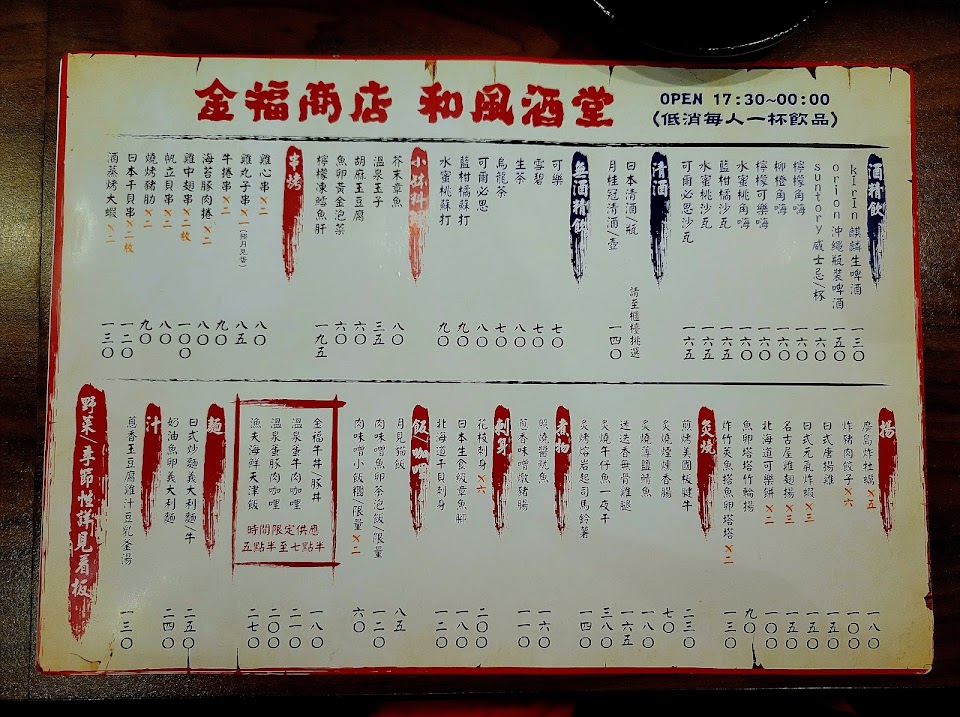 金福商店 和風酒堂
OPEN 17:30~00:00
(低消每人一杯飲品)
酒精飲
kirin 麒麟生啤酒 一三〇
orion 沖繩瓶裝啤酒 一五〇
suntory 威士忌/杯 一六〇
檸檬角嗨 一六〇
柳橙角嗨 一六〇
檸檬可樂嗨 一六〇
水蜜桃角嗨 一六〇
藍柑橘沙瓦 一六五
水蜜桃沙瓦 一六五
可爾必思沙瓦 一六五
清酒
日本清酒/瓶 請至櫃檯挑選
月桂冠清酒/壺 一四〇
無酒精飲
可樂 七〇
雪碧 七〇
生茶 八〇
烏龍茶 七〇
可爾必思 八〇
藍柑橘蘇打 九〇
水蜜桃蘇打 九〇
小缽料理
芥末章魚 八〇
溫泉玉子 三五
胡麻玉豆腐 六〇
魚卵黃金泡菜 六〇
檸檬凍鱈魚肝 一九五
串烤
雞心串×二 八〇
雞丸子串×一(邪月見醬) 八五
牛捲串×二 九〇
海苔豚肉捲×二 八〇
雞中翅串×二枚 一〇〇
帆立貝串×二 八〇
燒烤豬肋×二 九〇
日本干貝串×二枚 一二〇
酒蒸烤大蝦×二 一三〇
揚
廣島炸牡蠣×五 一八〇
炸豬肉餃子×六 一〇〇
日式唐揚雞 一五〇
日式元氣炸蝦×三 一五〇
名古屋雞翅揚×三 一五〇
北海道可樂餅×二 一〇〇
魚卵塔塔竹輪揚 九〇
炸竹莢魚塔魚卵塔塔×二 一三〇
炙燒
煎烤美國板腱牛 二三〇
炙燒煙燻香腸 七〇
炙燒薄鹽鯖魚 一八〇
迷迭香無骨雞腿 一六五
炙燒午仔魚一夜干 三八〇
炙烤熔岩起司馬鈴薯 一四〇
煮物
照燒醬魷魚 一六〇
蔥香味噌燉豬腸 一一〇
刺身
花枝刺身×六 二〇〇
日本生食級章魚腳 一八〇
北海道干貝刺身 一二〇
飯/咖哩
月見貓飯 八五
肉味噌魚卵茶泡飯/限量 一二〇
肉味噌小飯糰/限量×二 六〇
金福牛丼/豚丼 一八〇
溫泉蛋牛肉咖哩 二一〇
溫泉蛋豚肉咖哩 二〇〇
漁夫海鮮天津飯 二七〇
時間限定供應
五點半至七點半
麵
日式炒麵義大利麵牛 二五〇
奶油魚卵義大利麵 二四〇
汁
蔥香玉豆腐雞汁豆乳釜湯 一三〇
野菜/季節性詳見看板